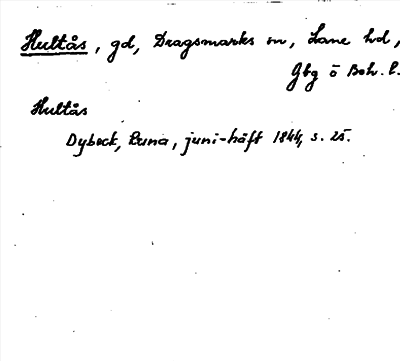 Hultås, gd, Dragsmarks sn, Lane hd,
Gbg o Boh. l.
Hultås
Dybeck, Runa, juni-häft 1844, s. 25.